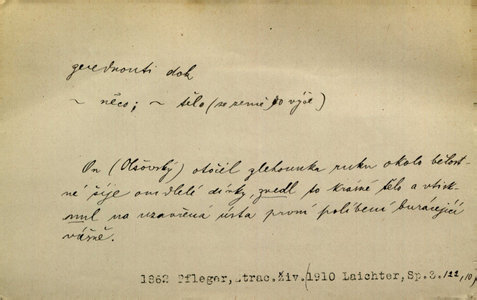 dok
~ něco; ~ tělo (se země do výše)
On (Olšovský) otočil ruku okolo bělost-
né šíje omdlelé dívky, zvedl to krásné tělo a vtisk-
nul na uzavřená ústa první políbení burácející
vášně.
1862 Pfleger, Ztrac. živ. (1910 Laichter, Sp. 3. 122, 10)